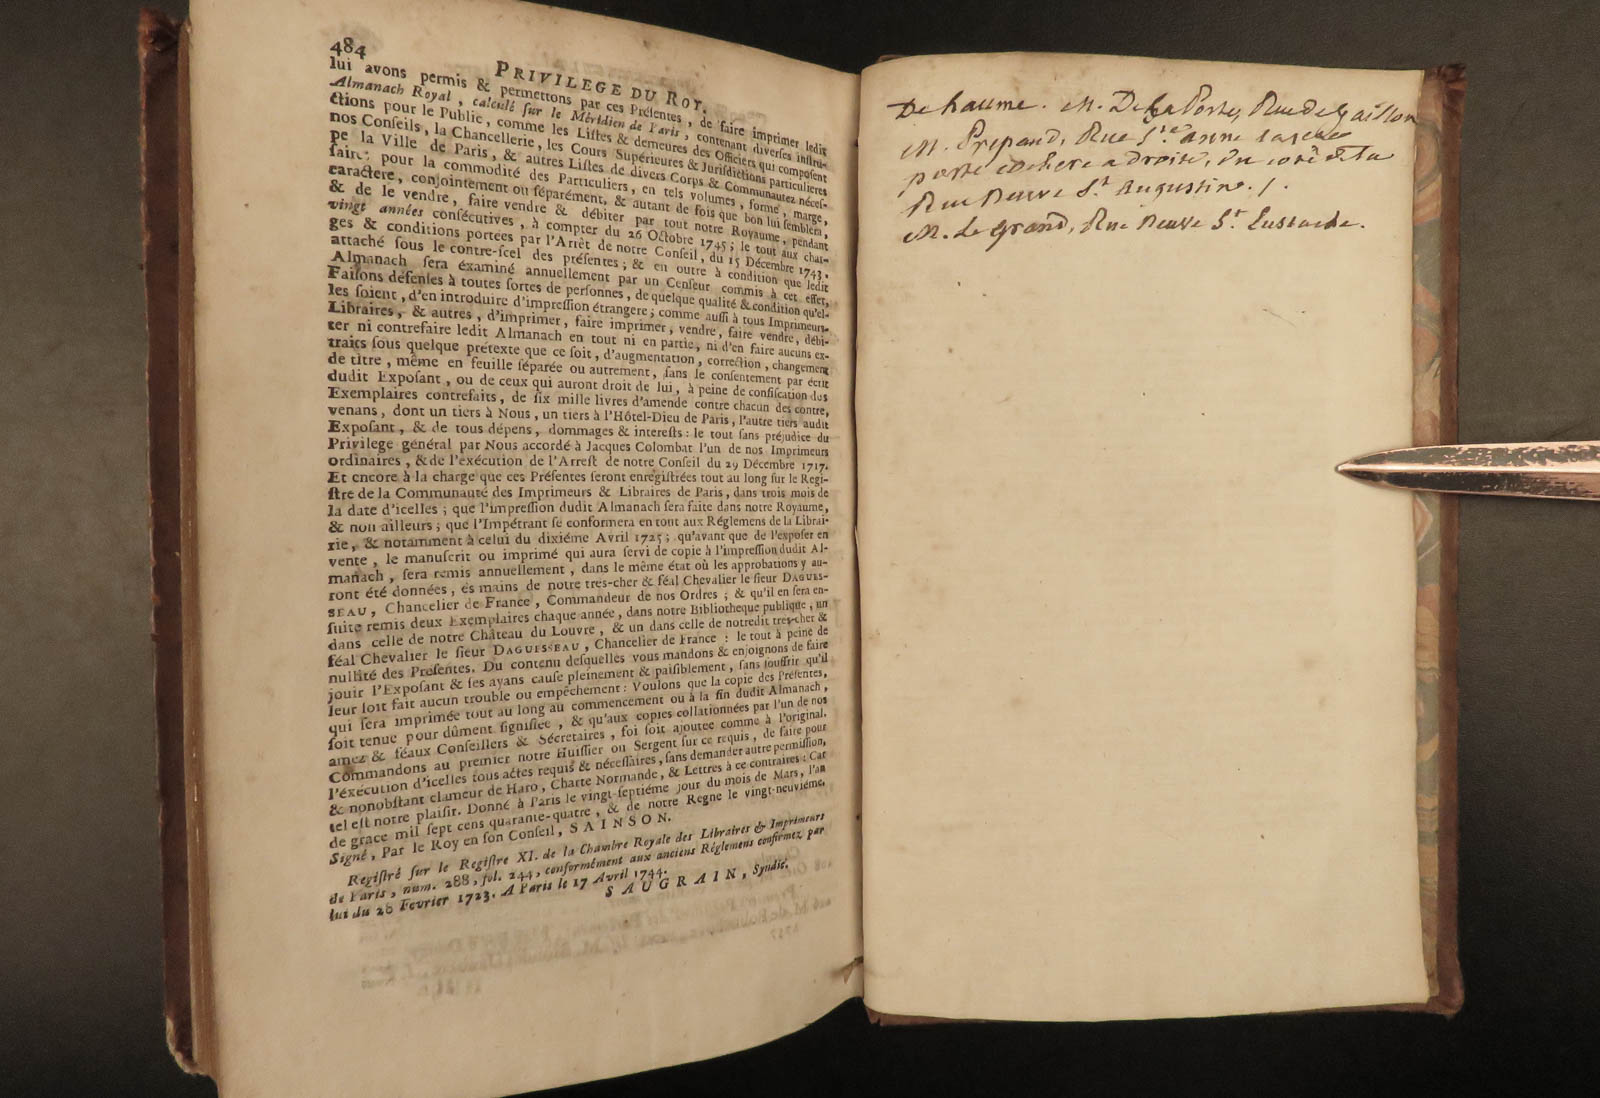 484
PRIVILEGE DU ROY.
lui avons permis & permettons par ces Préſentes, de faire imprimer ledit
Almanach Royal, calculé ſur le Méridien de Paris, contenant diverſes inſtru-
ctions pour le Public, comme les Liſtes & demeures des Officiers qui compoſent
nos Conſeils, la Chancellerie, les Cours Supérieures & Juriſdictions particulieres
pe la Ville de Paris, & autres Liſtes de divers Corps & Communautez néceſ-
ſaires pour la commodité des Particuliers, en tels volumes, forme, marge,
caractere, conjointement ou ſéparément, & autant de fois que bon lui ſemblera,
& de le vendre, faire vendre & débiter par tout notre Royaume, pendant
vingt années conſécutives, à compter du 26 Octobre 1745; le tout aux char-
ges & conditions portées par l'Arrêt de notre Conſeil, du 15 Décembre 1743.
attaché ſous le contre-ſcel des préſentes; & en outre à condition que ledit
Almanach ſera éxaminé annuellement par un Cenſeur commis à cet effet,
Faiſons défenſes à toutes ſortes de perſonnes, de quelque qualité & condition qu'el-
les ſoient, d'en introduire d'impreſſion étrangere; comme auſſi à tous Imprimeurs-
Libraires, & autres, d'imprimer, faire imprimer, vendre, faire vendre, débi-
ter ni contrefaire ledit Almanach en tout ni en partie, ni d'en faire aucuns ex-
traits ſous quelque prétexte que ce ſoit, d'augmentation, correction, changement
de titre, même en feuille ſéparée ou autrement, ſans le conſentement par écrit
dudit Expoſant, ou de ceux qui auront droit de lui, à peine de confiſcation des
Exemplaires contrefaits, de ſix mille livres d'amende contre chacun des contre,
venans, dont un tiers à Nous, un tiers à l'Hôtel-Dieu de Paris, l'autre tiers audit
Expoſant, & de tous dépens, dommages & intereſts: le tout ſans préjudice du
Privilege général par Nous accordé à Jacques Colombat l'un de nos Imprimeurs
ordinaires, & de l'exécution de l'Arreſt de notre Conſeil du 29 Décembre 1717.
Et encore à la charge que ces Préſentes ſeront enregiſtrées tout au long ſur le Regi-
ſtre de la Communauté des Imprimeurs & Libraires de Paris, dans trois mois de
la date d'icelles; que l'impreſſion dudit Almanach ſera faite dans notre Royaume,
& non ailleurs; que l'Impétrant ſe conformera en tout aux Réglemens de la Librai-
rie, & notamment à celui du dixiéme Avril 1725; qu'avant que de l'expoſer en
vente, le manuſcrit ou imprimé qui aura ſervi de copie à l'impreſſion dudit Al-
manach, ſera remis annuellement, dans le même état où les approbations y au-
ront été données, ès mains de notre tres-cher & féal Chevalier le ſieur DAGUES-
SEAU, Chancelier de France, Commandeur de nos Ordres; & qu'il en ſera en-
ſuite remis deux Exemplaires chaque année, dans notre Bibliotheque publique, un
dans celle de notre Château du Louvre, & un dans celle de notredit tres-cher &
féal Chevalier le ſieur DAGUESSEAU, Chancelier de France: le tout à peine de
nullité des Preſentes. Du contenu deſquelles vous mandons & enjoignons de faire
jouir l'Expoſant & ſes ayans cauſe pleinement & paiſiblement, ſans ſouffrir qu'il
leur ſoit fait aucun trouble ou empêchement: Voulons que la copie des Préſentes,
qui ſera imprimée tout au long au commencement ou à la fin dudit Almanach,
ſoit tenue pour dûment ſignifiée, & qu'aux copies collationnées par l'un de nos
amez & féaux Conſeillers & Sécretaires, foi ſoit ajoutée comme à l'original.
Commandons au premier notre Huiſſier ou Sergent ſur ce requis, de faire pour
l'éxécution d'icelles tous actes requis & néceſſaires, ſans demander autre permiſſion,
& nonobſtant clameur de Haro, Charte Normande, & Lettres à ce contraires: Car
tel eſt notre plaiſir. Donné à Paris le vingt-ſeptiéme jour du mois de Mars, l'an
de grace mil ſept cens quarante-quatre, & de notre Regne le vingt-neuviéme.
Signé, Par le Roy en ſon Conſeil, SAINSON.
Regiſtré ſur le Regiſtre XI. de la Chambre Royale des Libraires & Imprimeurs
de Paris, num. 288, fol. 244, conformément aux anciens Réglemens confirmez par
lui du 28 Fevrier 1723. A Paris le 17 Avril 1744.
SAUGRAIN, Syndic.
De haume. M. De La Porte, Rue de Gaillon
M. Prepaud, Rue Ste anne
porte cochere a droite, du coté de la
Rue Neuve St Augustin ./.
M. Le grand, Rue Neuve St Eustache.